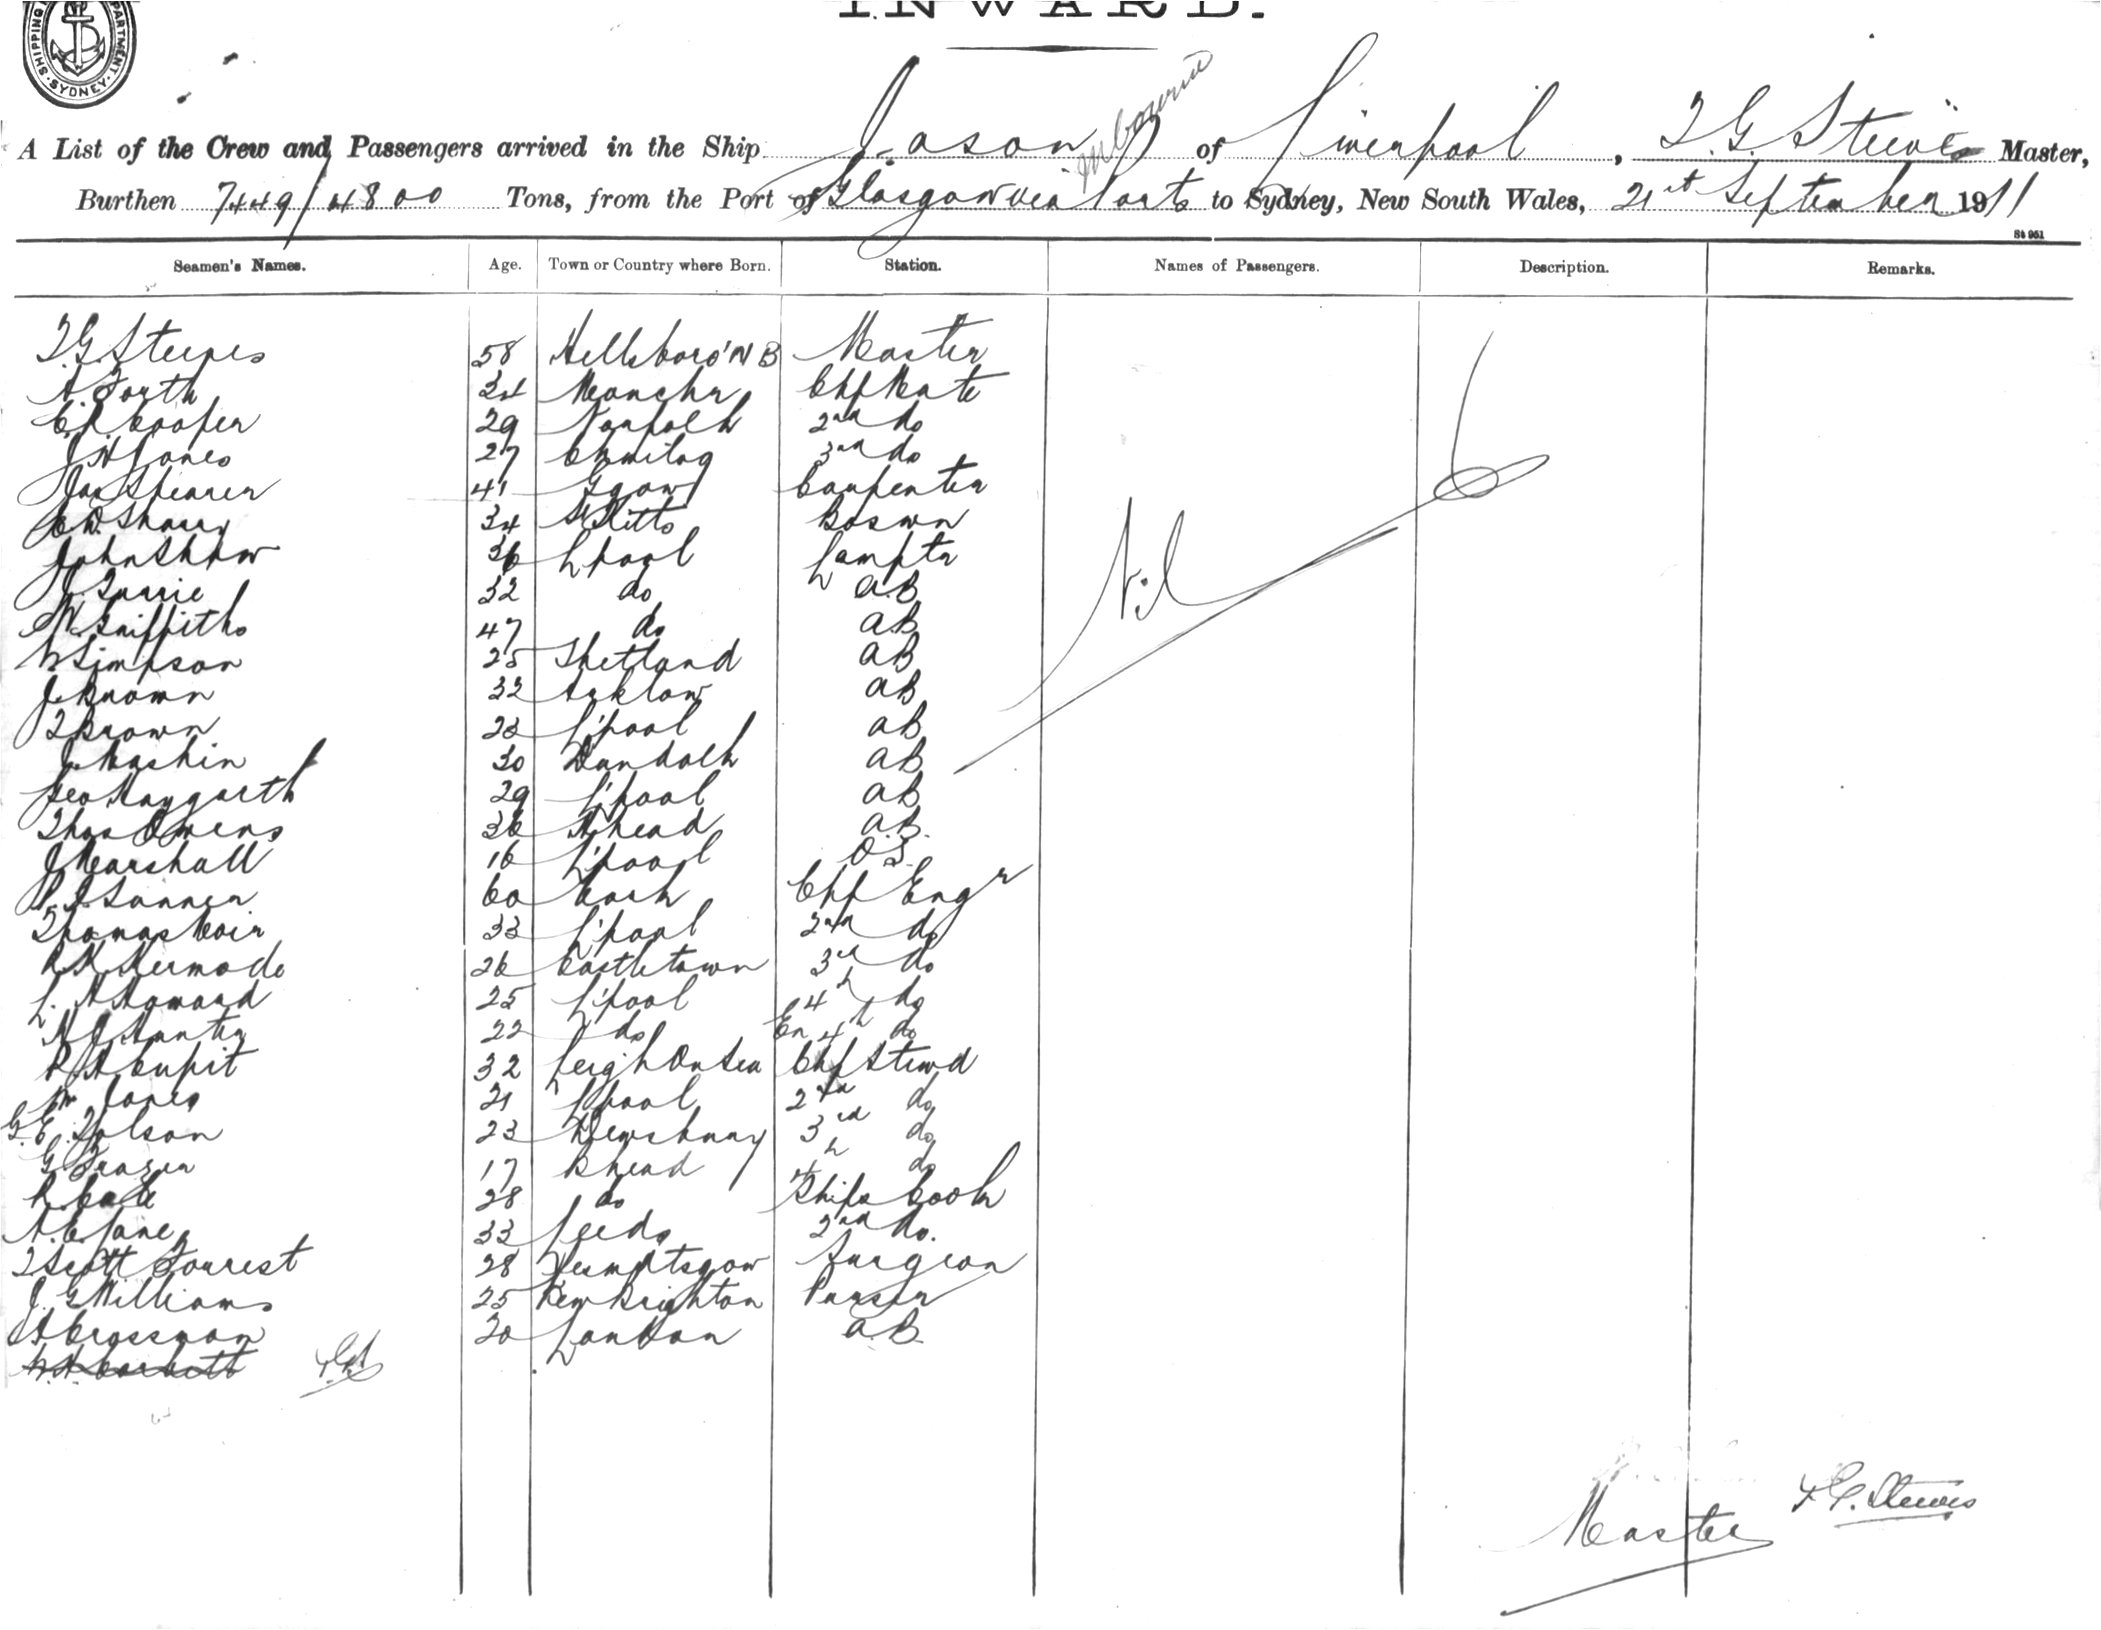 SHIPPING DEPARTMENT SYDNEY
INWARD.
Melbourne
A List of the Crew and Passengers arrived in the Ship Jason of Liverpool, T.G. Steeves Master,
Burthen 7449/4800 Tons, from the Port of Glasgow via Ports to Sydney, New South Wales, 21st September 1911
St 951
Seamen's Names. Age. Town or Country where Born. Station. Names of Passengers. Description. Remarks.
T G Steeves 58 Hillsboro' N B Master
A. Forth 34 Manchr Chf Mate
C. R. Cooper 29 Norfolk 2nd do
J H Jones 27 3rd do
Jas Shearer 41 Ggow Carpenter
34 St Kitts Boswn
John Shaw 36 Lpool Lamptr
J. 32 do AB
W. Griffiths 47 do AB
Simpson 25 Shetland AB
J. Brown 32 Arklow AB
T Brown 23 L'pool AB
J. Maskin 30 Dundalk AB
Geo Haygarth 29 L'pool AB
Thos Owens 36 B'head A.B.
J Marshall 16 L'pool O.S.
60 Cork Chf Engr
Thomas Moir 33 L'pool 2nd do
R. H. Kermode 26 Castletown 3rd do
L. H Howard 25 L'pool 4th do
H J Hunter 22 do Ex 4th do
R A Cupit 32 Leigh On Sea Chf Stewd
Wm Jones 21 Lpool 2nd do
G. E. Tolson 23 Dewsbury 3rd do
G Frazer 17 Bhead 4th do
R. Cale 28 do Ships Cook
A. C. Jane 33 Leeds 2nd do.
T Scott Forrest 28 Surgeon
J. G Williams 25 New Brighton Purser
A Crossman 30 London A.B.
Nil
Master T. G. Steeves